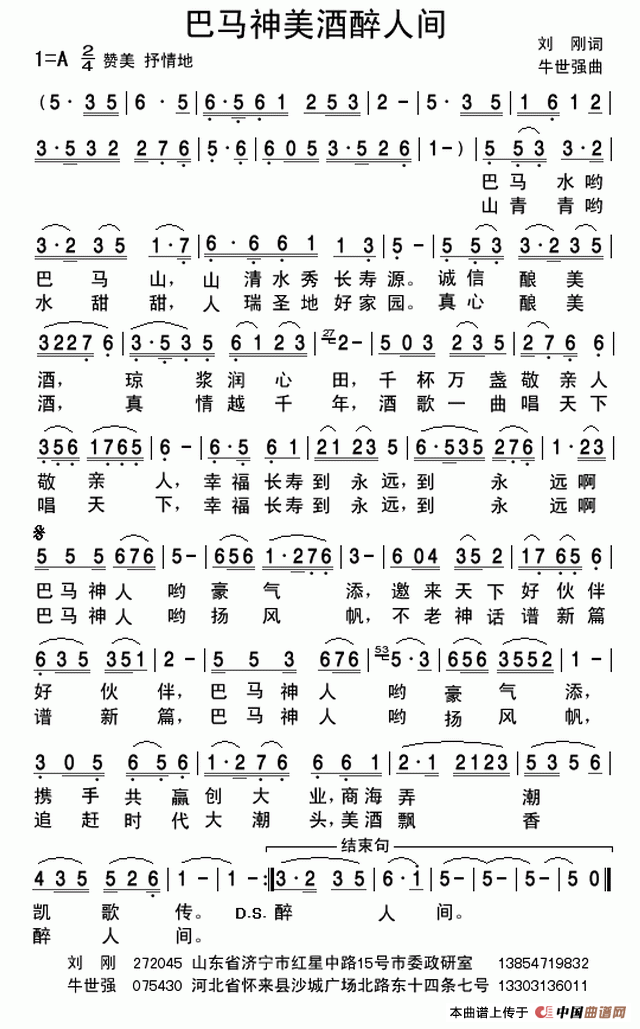 巴马神美酒醉人间
1=A 2/4 赞美 抒情地
刘 刚词
牛世强曲
(5· 35 | 6·561 2253 | 2- | 5· 35 | 16 12 |
3·532 276 | 5·6 | 605 3·526 | 1-) | 5 53 3·2 |
巴马 水哟
山青 青哟
3·2 35 1·7 | 6·61 13 | 5- | 5 53 3·2 35 |
巴 马 山, 山清水秀长寿源。诚信 酿美
水 甜 甜, 人瑞圣地好家园。真心 酿美
32276 | 3·535 6123 | 27 2- | 503 235 | 276 6 |
酒, 琼 浆润心 田, 千杯万盏敬亲人
酒, 真 情越千 年, 酒歌一曲唱天下
356 1765 | 6- | 6·5 61 | 21 23 5 | 6·535 276 | 1·23 |
敬 亲 人, 幸福长寿到永远, 到 永 远啊
唱 天 下, 幸福长寿到永远, 到 永 远啊
5 5 5 676 | 5- | 656 1·276 | 3- | 604 352 | 17 65 6 |
巴马神人 哟豪 气 添, 邀来天下好伙伴
巴马神人 哟扬 风 帆, 不老神话谱新篇
635 351 | 2- | 5 5 3 676 | 53 5·3 | 656 3552 | 1- |
好 伙 伴, 巴马神人 哟豪 气 添,
谱 新 篇, 巴马神人 哟扬 风 帆,
3 05 656 | 1·276 | 661 | 2·1 2123 | 5356 |
携手共赢创大 业, 商海弄 潮
追赶时代大潮 头, 美酒飘 香
结束句
435 526 | 1- | 1- :‖ 3·2 35 | 6·1 | 5- | 5- | 50 ‖
凯 歌 传。 D.S. 醉 人 间。
醉 人 间。
刘 刚 272045 山东省济宁市红星中路15号市委政研室 13854719832
牛世强 075430 河北省怀来县沙城广场北路东十四条七号 13303136011
本曲谱上传于 中国曲谱网